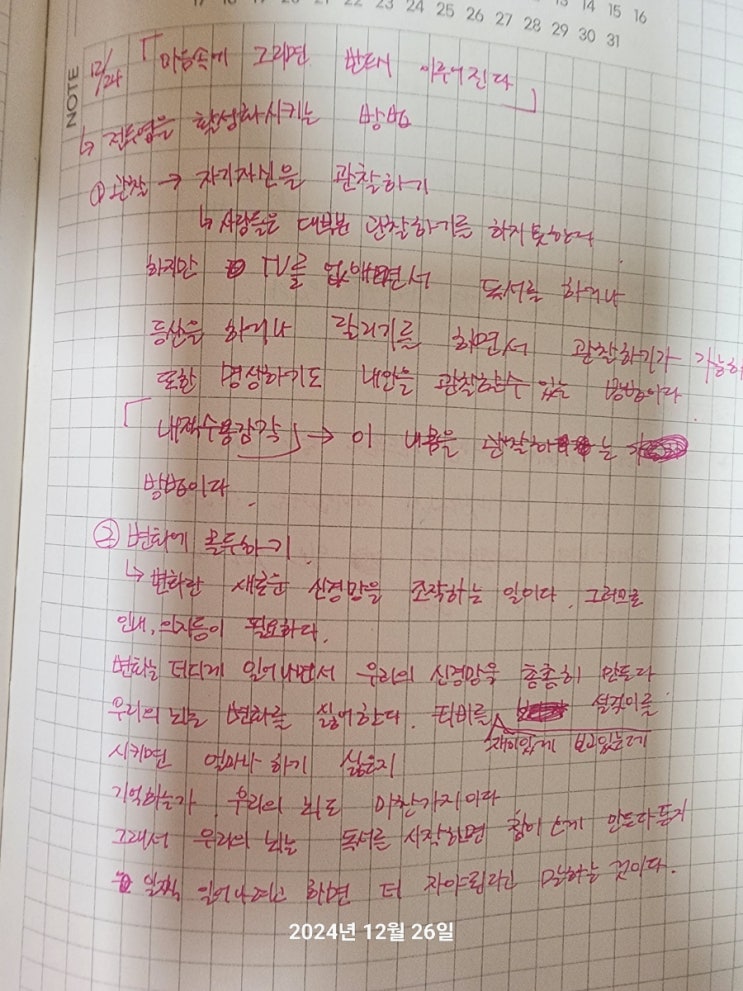 17 18 19 20 21 22 23 24 25 26 27 28 29 30 31
13 14 15 16
NOTE
12/24 「마음속에 그리면 반드시 이루어진다」
↳ 전두엽을 활성화시키는 방법
① 관찰 → 자기자신을 관찰하기
↳ 사람들은 대부분 관찰하기를 하지 못한다.
하지만 TV를 없애면서 독서를 하거나
등산을 하거나 달리기를 하면서 관찰하기가 가능하
또한 명상하기도 내안을 관찰할수 있는 방법이다.
「내적수용감각」 → 이 내용을 관찰하는
방법이다.
② 변화에 몰두하기.
↳ 변화란 새로운 신경망을 조작하는 일이다. 그러므로
인내, 의지등이 필요하다.
변화는 더디게 일어나면서 우리의 신경망을 촘촘히 만든다
우리의 뇌는 변화를 싫어한다. 티비를 재미있게 보고있는데 설겆이를
시키면 얼마나 하기 싫은지
기억하는가. 우리의 뇌도 마찬가지이다
그래서 우리의 뇌는 독서를 시작하면 잠이 오게 만든다든지
일찍 일어나려고 하면 더 자야된다고 말하는 것이다.
2024년 12월 26일